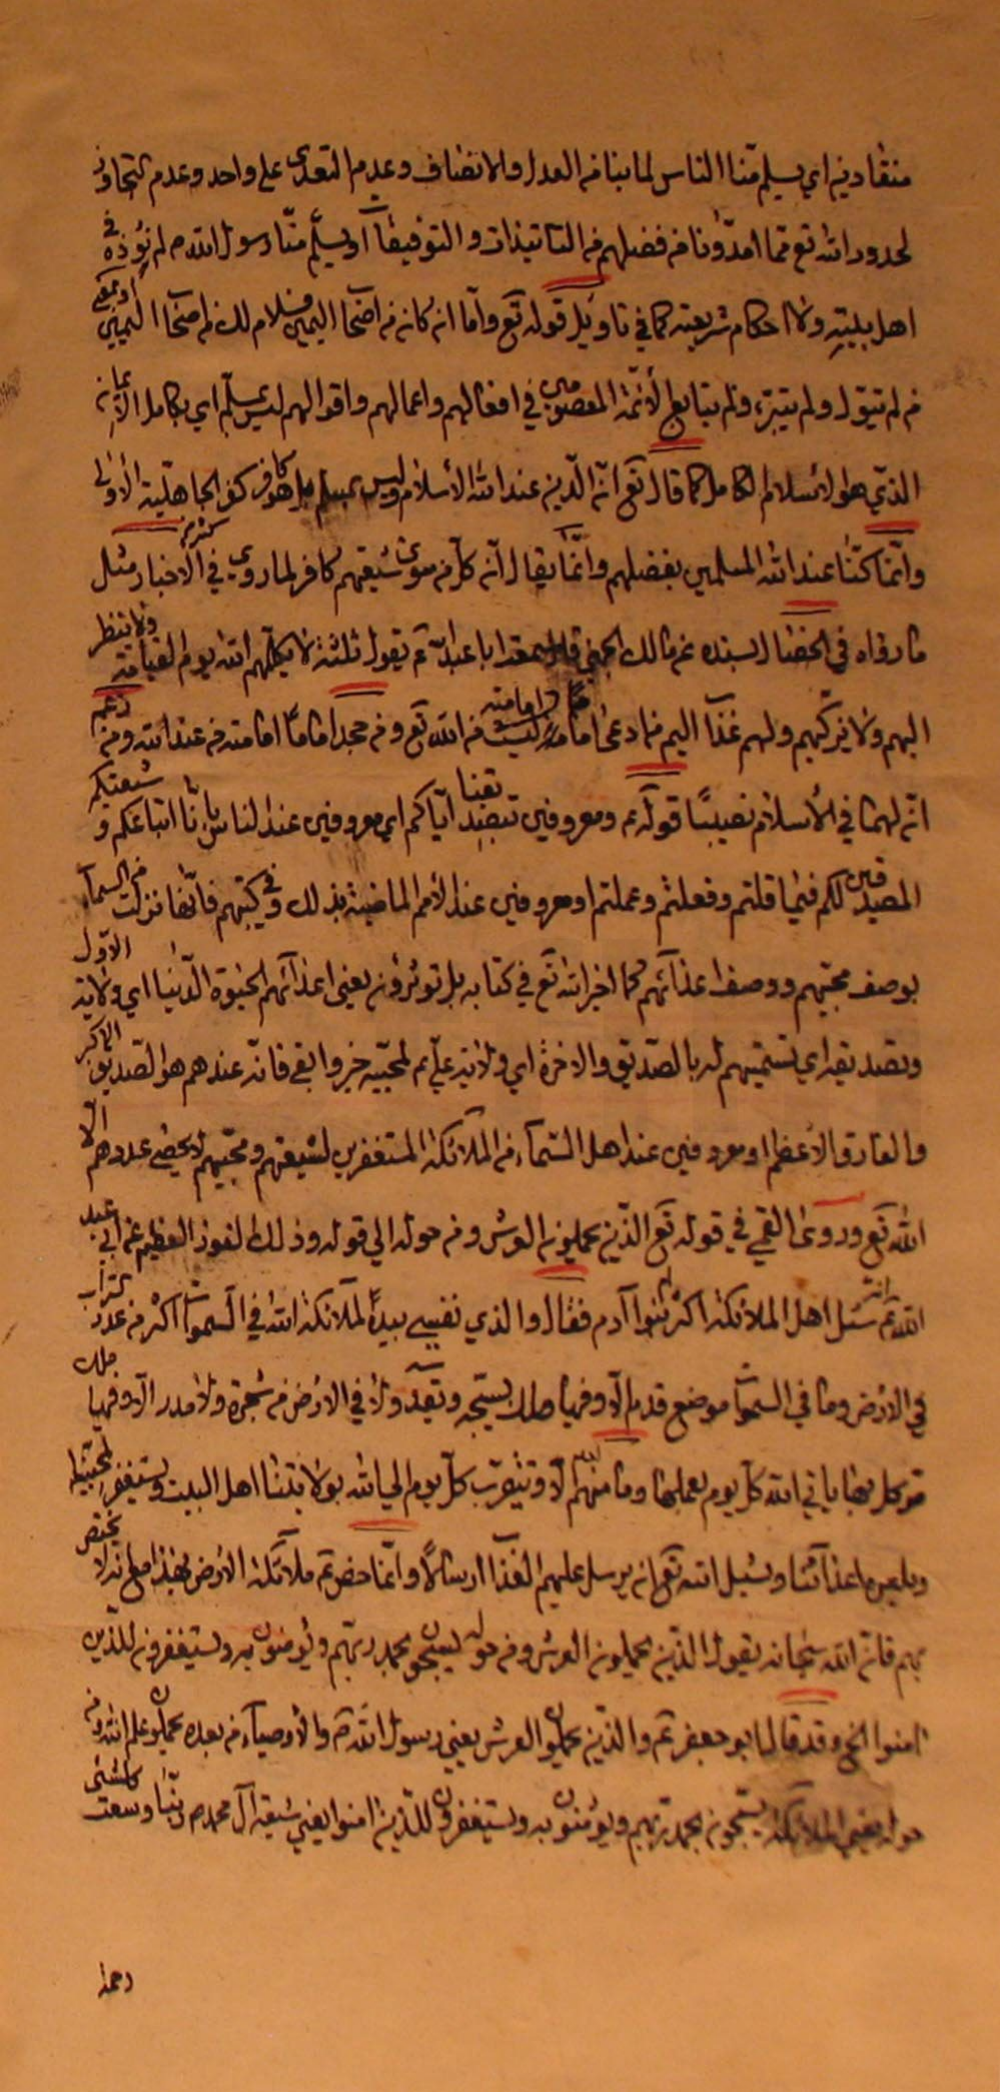 منقادين اي يسلم منا الناس لما بنا من العدل والانصاف وعدم التعدي على واحد وعدم التجاوز
لحدود الله تع مما امدونا من فضلهم من التاييدات والتوفيقات او يسلم منا رسول الله ص لم نؤذه في
اهل بيته ولا احكام شريعته كما في تاويل قوله تع واما ان كان من اصحاب اليمين فسلام لك من اصحاب اليمين او بمعنى
من لم يتول ولم يتبرء ولم يتابع الأئمة المعصومين في افعالهم واعمالهم واقوالهم ليس بمسلم اي بكامل الايمان
الذي هو الاسلام الكامل كما قال تع ان الدين عند الله الأسلام وليس بمسلم بل هو كافر كفر الجاهلية الأولى
وانما كنا عند الله المسلمين بفضلهم وانما يقال ان كل من سوى شيعتهم كافر لما روي في الاخبار مثل
ما رواه في الخصال بسنده عن مالك الجهني قال سمعت ابا عبد الله ع يقول ثلثة لا يكلمهم الله يوم القيامة ولا ينظر
اليهم ولا يزكيهم ولهم عذاب اليم من ادعى اماما ليست امامته من الله تع ومن جحد اماما امامته من عند الله ومن زعم
ان لهما في الأسلام نصيبا قوله ع ومعروفين بتصديقنا اياكم اي معروفين عند الناس بانا اتباعكم وشيعتكم
المصدقين لكم فيما قلتم وفعلتم وعملتم او معروفين عند الأمم الماضية بذلك وفي كتبهم فانها نزلت من السماء
بوصف محبيهم ووصف اعدائهم كما اخبر الله تع في كتابه بل تؤثرون يعني اعدائهم الحيوة الدنيا اي ولاية الاول
وتصديقه اي تسميتهم له بالصديق والاخرة اي ولاية علي ع لمحبيه خير وابقى فانه عندهم هو الصديق الاكبر
والفاروق الأعظم او معروفين عند اهل السماء من الملائكة المستغفرين لشيعتهم ومحبيهم لا يحصي عددهم الا
الله تع وروى القمي في قوله تع الذين يحملون العرش ومن حوله الى قوله وذلك الفوز العظيم عن ابي عبد
الله ع انه سئل اهل الملائكة اكثر ام بنوا آدم فقال والذي نفسي بيده لملائكة الله في السموات اكثر من عدد التراب
في الارض وما في السموات موضع قدم الا وفيها ملك يسبحه ويقدسه ولا في الارض من شجرة ولا مدر الا وفيها ملك
موكل بها ياتي الله كل يوم بعملها وما منهم الا ويتقرب كل يوم الى الله بولايتنا اهل البيت ويستغفر لمحبينا
ويلعن اعدائنا ويسئل الله تع ان يرسل عليهم العذاب ارسالا وانما خص ع ملائكة الارض بهذا مع انه لا يختص
بهم فان الله سبحانه يقول الذين يحملون العرش ومن حوله يسبحون بحمد ربهم ويؤمنون به ويستغفرون للذين
امنوا الخ وقد قال ابو جعفر ع والذين يحملون العرش يعني رسول الله ص والأوصياء من بعده يحملون علم الله ومن
حوله يعني الملائكة يسبحون بحمد ربهم ويؤمنون به ويستغفرون للذين امنوا يعني شيعة آل محمد ص ربنا وسعت كل شئ
رحمة